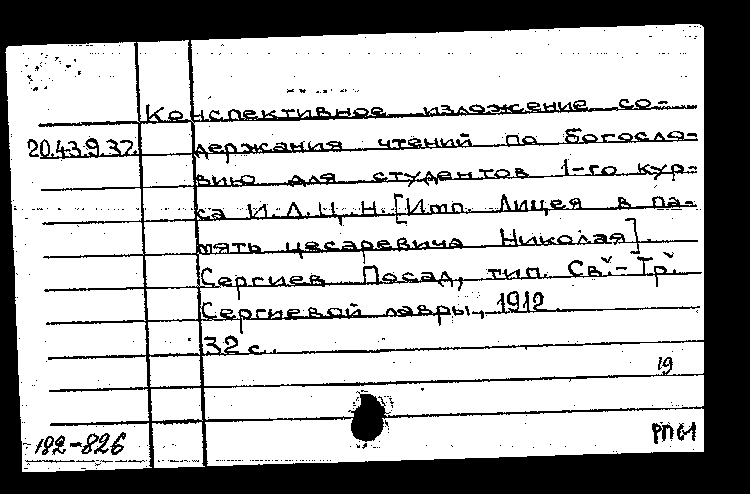 Конспективное изложение со-
20.43.9.37. держания чтений по богосло-
вию для студентов 1-го кур-
са И.Л.Ц.Н. [Имп. Лицея в па-
мять цесаревича Николая].
Сергиев Посад, тип. Св.-Тр.
Сергиевой лавры, 1912
32 с.
19
182-826 РП61